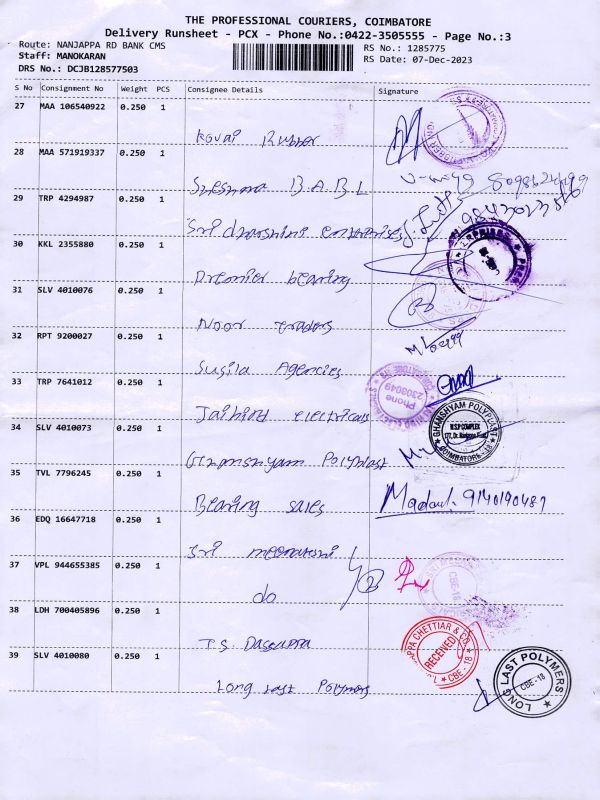 THE PROFESSIONAL COURIERS, COIMBATORE
Delivery Runsheet - PCX - Phone No.:0422-3505555 - Page No.:3
Route: NANJAPPA RD BANK CMS
RS No.: 1285775
Staff: MANOKARAN
RS Date: 07-Dec-2023
DRS No.: DCJB128577503
S No Consignment No Weight PCS Consignee Details Signature
27 MAA 106540922 0.250 1
Kovai Rubber
28 MAA 571919337 0.250 1
Sushma B.A.B.L
29 TRP 4294987 0.250 1
9843023876
Sri dharshini enterprises
30 KKL 2355880 0.250 1
Premier bearing
31 SLV 4010076 0.250 1
Noor traders
32 RPT 9200027 0.250 1
Susila Agencies
33 TRP 7641012 0.250 1
Phone 2303049
Jaihind electricals
34 SLV 4010073 0.250 1
GHANSHYAM POLYPLAST
M.S.P COMPLEX
COIMBATORE - 18
Ghanshyam Polyplast
35 TVL 7796245 0.250 1
Bearing sales
9140190487
36 EDQ 16647718 0.250 1
Sri meenatchi
37 VPL 944655385 0.250 1
do
CBE-18
38 LDH 700405896 0.250 1
T.S. Dasappa
CHETTIAR & CO.
RECEIVED
CBE - 18
39 SLV 4010080 0.250 1
Long Last Polymers
LONG LAST POLYMERS
CBE - 18